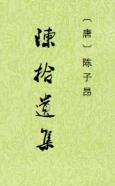 〔唐〕陈子昂
陳拾遺集